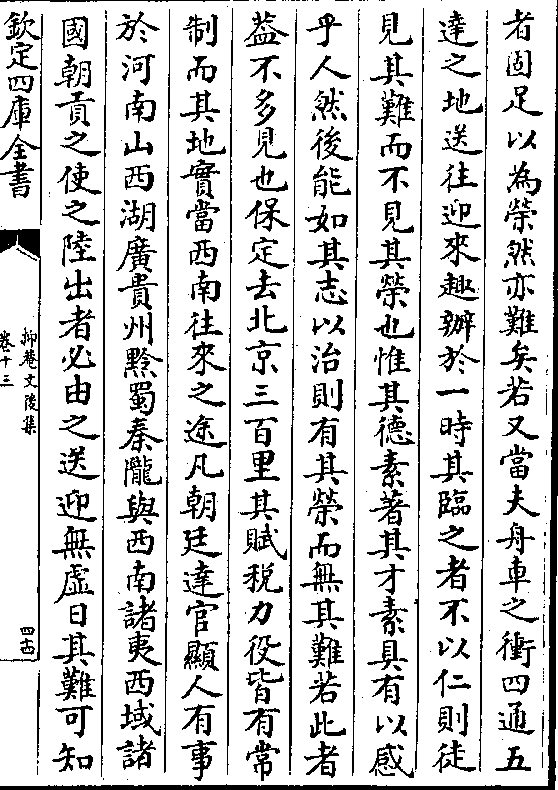 者固足以為榮然亦難矣若又當夫舟車之衝四通五
達之地送往迎來趣辦於一時其臨之者不以仁則徒
見其難而不見其榮也惟其德素著其才素具有以感
乎人然後能如其志以治則有其榮而無其難若此者
葢不多見也保定去北京三百里其賦稅力役皆有常
制而其地實當西南往來之途凡朝廷達官顯人有事
於河南山西湖廣貴州黔蜀秦隴與西南諸夷西域諸
國朝貢之使之陸出者必由之送迎無虛日其難可知
欽定四庫全書
抑菴文後集
卷十三
四十四